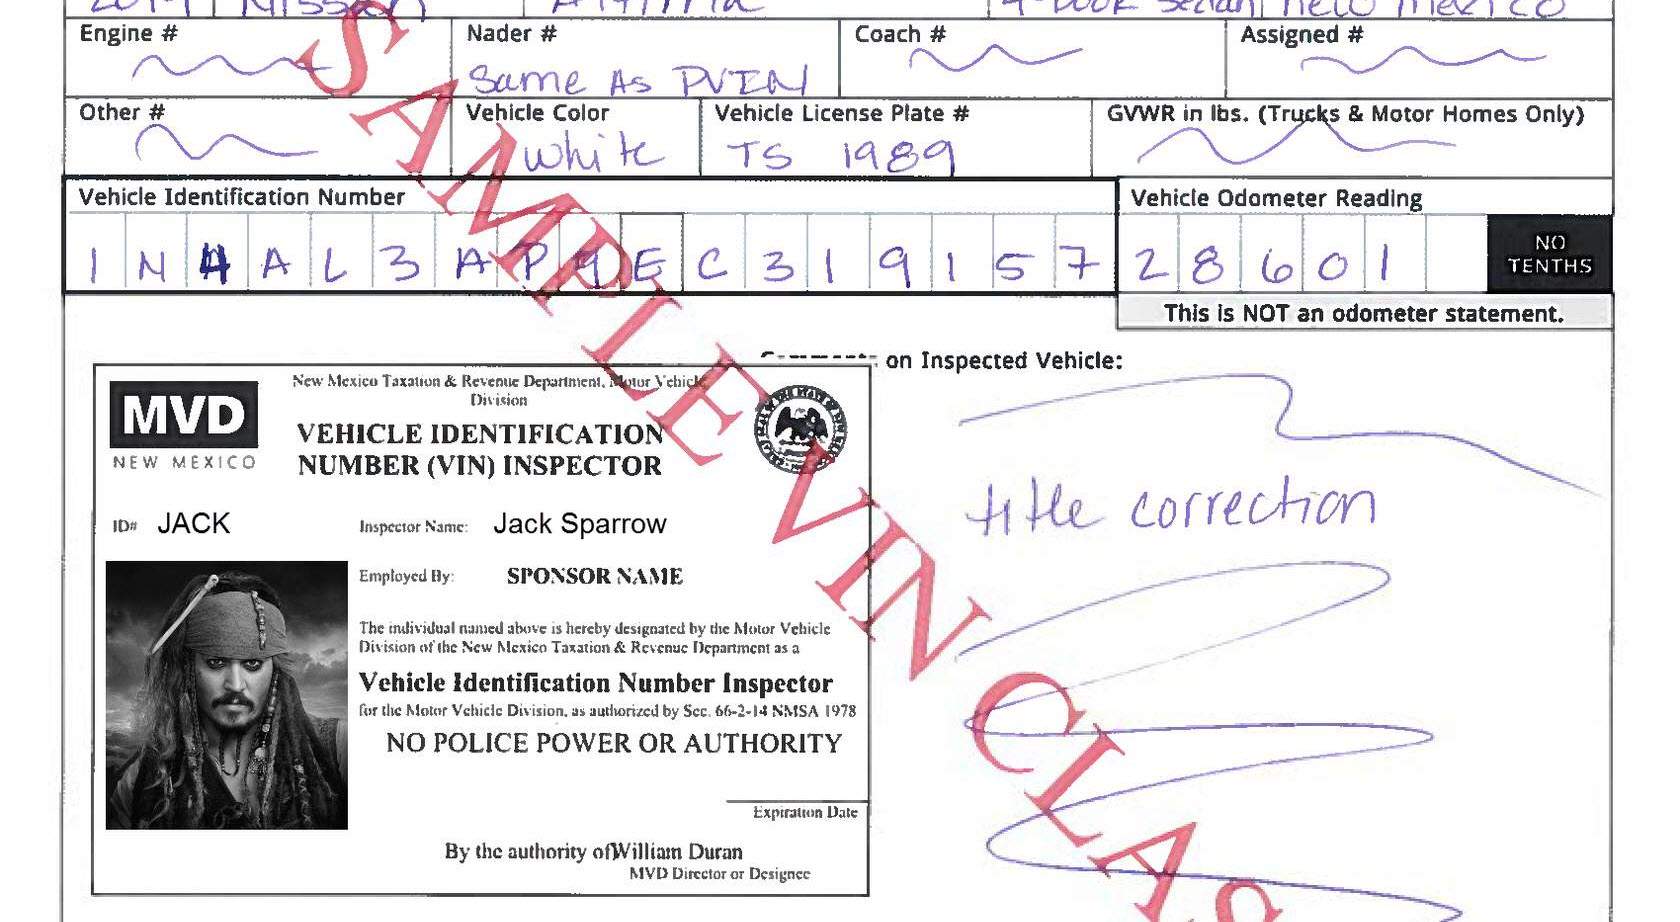 2014 Nissan Altima 4-door Sedan New Mexico
Engine # Nader # Coach # Assigned #
Same As PVIN
Other # Vehicle Color Vehicle License Plate # GVWR in lbs. (Trucks & Motor Homes Only)
White TS 1989
Vehicle Identification Number Vehicle Odometer Reading
1 N 4 A L 3 A P 9 E C 3 1 9 1 5 7 2 8 6 0 1 NO TENTHS
This is NOT an odometer statement.
Comments on Inspected Vehicle:
title correction
MVD
NEW MEXICO
New Mexico Taxation & Revenue Department, Motor Vehicle
Division
VEHICLE IDENTIFICATION
NUMBER (VIN) INSPECTOR
ID# JACK Inspector Name: Jack Sparrow
Employed By: SPONSOR NAME
The individual named above is hereby designated by the Motor Vehicle
Division of the New Mexico Taxation & Revenue Department as a
Vehicle Identification Number Inspector
for the Motor Vehicle Division, as authorized by Sec. 66-2-14 NMSA 1978
NO POLICE POWER OR AUTHORITY
Expiration Date
By the authority of William Duran
MVD Director or Designee
SAMPLE VIN CLAS